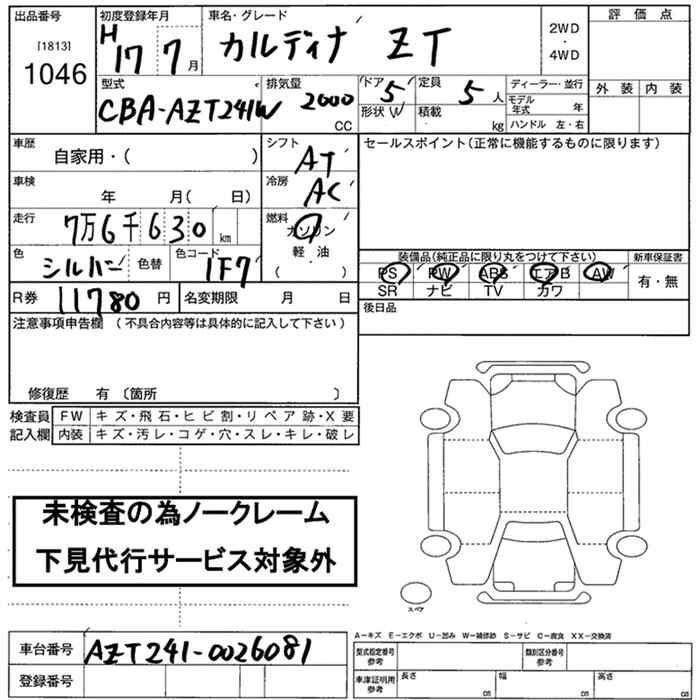 出品番号 初度登録年月 車名・グレード 評価点
[1813] H 17 7月 カルディナ ZT 2WD・4WD
1046
型式 排気量 ドア 5 定員 5人 ディーラー・並行 外装 内装
CBA-AZT241W 2000 CC 形状 W 積載 kg モデル年式 年
ハンドル 左・右
車歴 自家用・( ) シフト AT セールスポイント(正常に機能するものに限ります)
車検 年 月( 日) 冷房 AC
走行 7万6千630km 燃料 ガソリン
軽・油
( )
色 シルバー 色替 色コード 1F7 装備品(純正品に限り丸をつけて下さい) 新車保証書
PS PW ABS エアB AW 有・無
SR ナビ TV カワ
R券 11780円 名変期限 月 日 後日品
注意事項申告欄 (不具合内容等は具体的に記入して下さい)
修復歴 有 〔箇所 〕
検査員 FW キズ・飛石・ヒビ割・リペア跡・X要
記入欄 内装 キズ・汚レ・コゲ・穴・スレ・キレ・破レ
未検査の為ノークレーム
下見代行サービス対象外
スペア
A-キズ E-エクボ U-凹み W-補修跡 S-サビ C-腐食 XX-交換済
車台番号 AZT241-0026081 型式指定番号 参考 類別区分番号 参考
登録番号 車庫証明用 参考 長さ cm 幅 cm 高さ cm